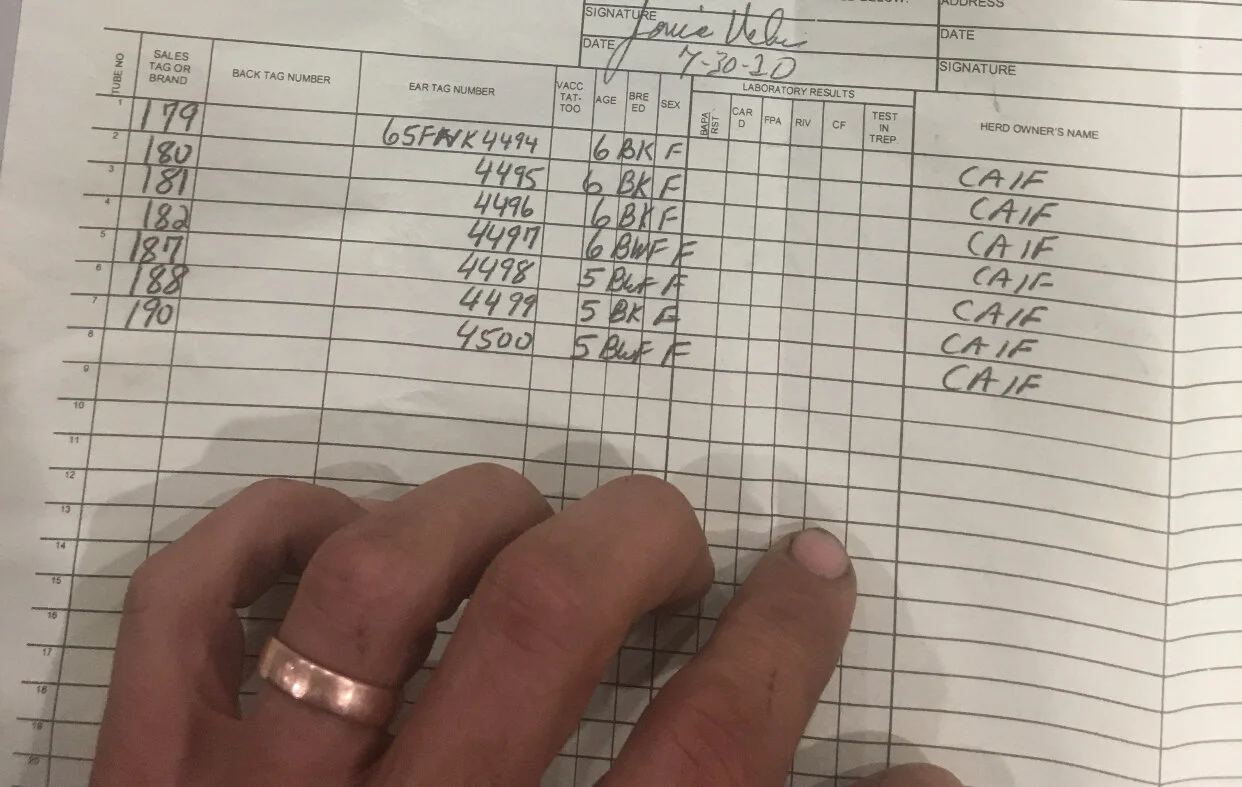 BELOW:
ADDRESS
SIGNATURE
DATE 7-30-20
DATE
SIGNATURE
TUBE NO SALES TAG OR BRAND BACK TAG NUMBER EAR TAG NUMBER VACC TAT-TOO AGE BRE ED SEX LABORATORY RESULTS
BAPA RST CAR D FPA RIV CF TEST IN TREP HERD OWNER'S NAME
1 179 65FNK4494 6 BK F CAIF
2 180 4495 6 BK F CAIF
3 181 4496 6 BK F CAIF
4 182 4497 6 BWF F CAIF
5 187 4498 5 BWF F CAIF
6 188 4499 5 BK F CAIF
7 190 4500 5 BWF F CAIF
8
9
10
11
12
13
14
15
16
17
18
19
20